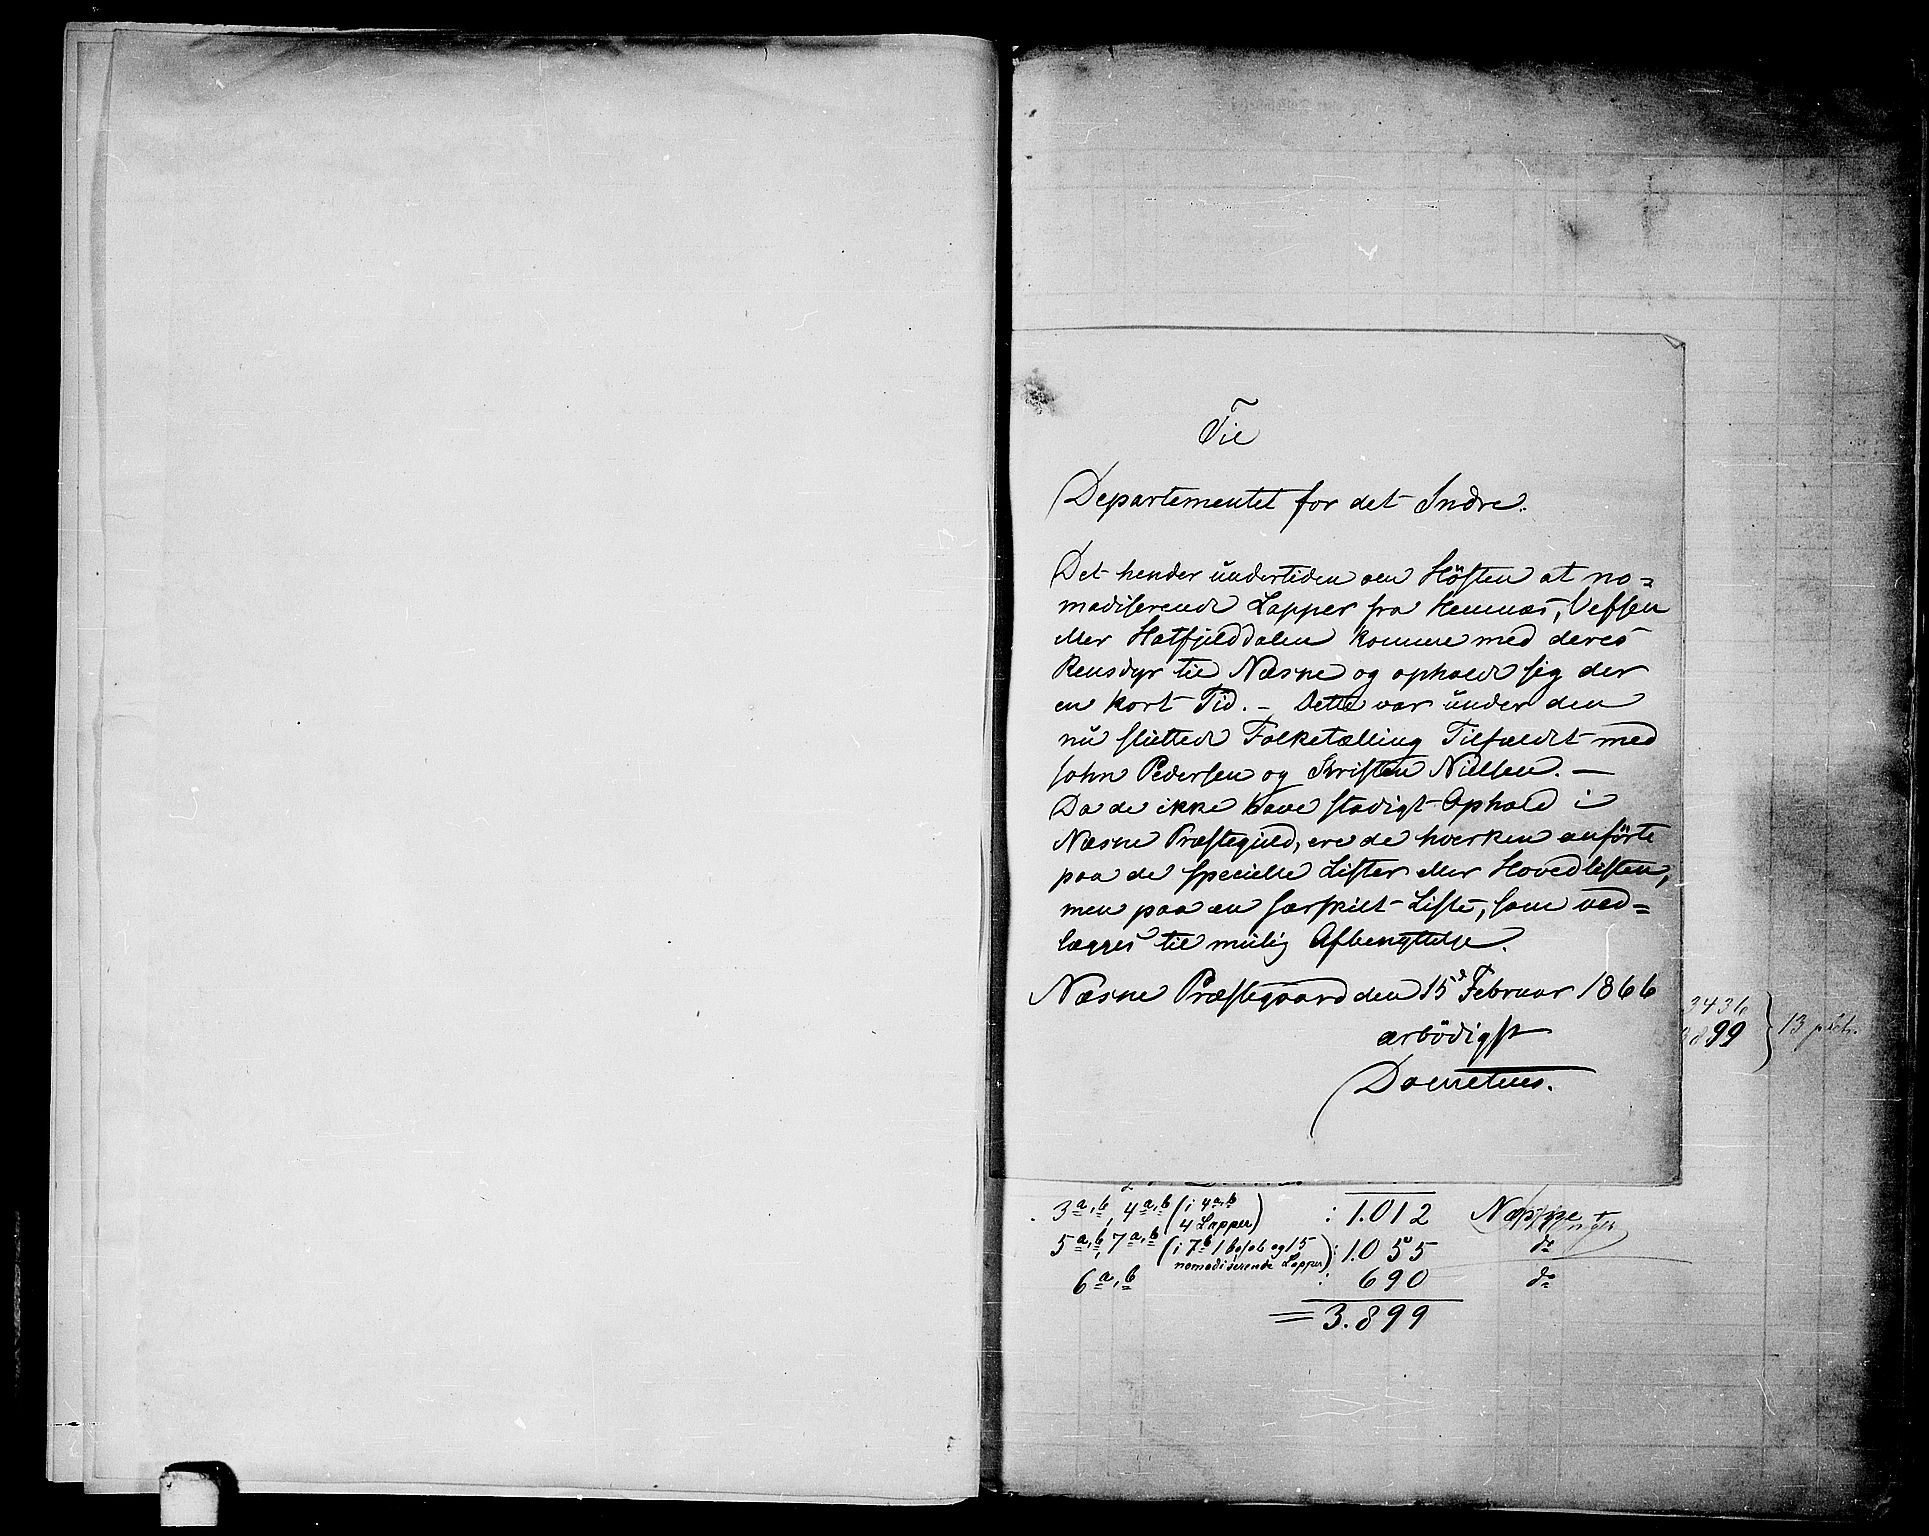 Til
Departementet for det Indre.
Det hender undertiden om Høsten at no=
madiserende Lapper fra Hemnæs, Vefsen
eller Hatfjelddalen komme med deres
Rensdyr til Næsne og opholde sig der
en kort Tid. – Dette var under den
nu sluttede Folketælling Tilfældet med
John Pedersen og Kristen Nielsen. —
Da de ikke have stadigt Ophold i
Næsne Præstegjeld, ere de hverken anførte
paa de specielle Lister eller Hovedlisten,
men paa en særskilt Liste, som ved=
lægges til mulig Afbenyttelse.
Næsne Præstegaard den 15d Februar 1866
ærbødigst
3436
3899 } 13 pktr.
3 a, b, 4 a, b (i 4 a, b 4 Lapper) : 1.012 Næppe
5 a, b, 7 a, b (i 7 b 1 bofast og 15 nomadiserende Lapper) : 1.055 do
6 a, b : 690 do
= 3.899